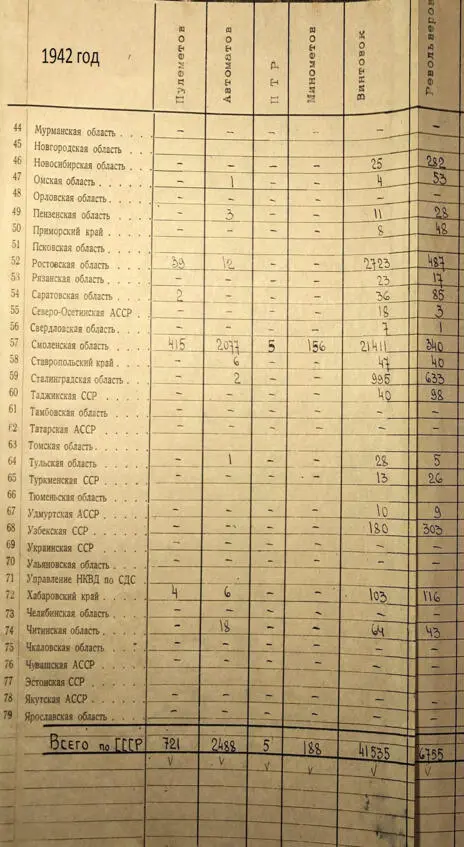 1942 год
Пулеметов Автоматов ПТР Минометов Винтовок Револьверов
44 Мурманская область . . . – – – – – –
45 Новгородская область
46 Новосибирская область . . – – – – 25 282
47 Омская область . . . . . – 1 – – 4 53
48 Орловская область . . . . – – – – – –
49 Пензенская область . . . . – 3 – – 11 28
50 Приморский край . . . . – – – – 8 48
51 Псковская область . . . .
52 Ростовская область . . . . 39 12 – – 2723 487
53 Рязанская область . . . . – – – – 23 17
54 Саратовская область . . . 2 – – – 36 85
55 Северо-Осетинская АССР . – – – – 18 3
56 Свердловская область . . . – – – – 7 1
57 Смоленская область . . . 415 2077 5 156 21411 340
58 Ставропольский край . . . – 6 – – 47 40
59 Сталинградская область . . – 2 – – 995 633
60 Таджикская ССР . . . . – – – – 40 98
61 Тамбовская область . . . – – – – – –
62 Татарская АССР . . . . – – – – – –
63 Томская область . . . . .
64 Тульская область . . . . – 1 – – 28 5
65 Туркменская ССР . . . . – – – – 13 26
66 Тюменьская область . . .
67 Удмуртская АССР . . . . – – – – 10 9
68 Узбекская ССР . . . . . – – – – 180 303
69 Украинская ССР . . . . – – – – – –
70 Ульяновская область . . . – – – – – –
71 Управление НКВД по СДС .
72 Хабаровский край . . . . 4 6 – – 103 116
73 Челябинская область . . . – – – – – –
74 Читинская область . . . . – 18 – – 64 43
75 Чкаловская область . . . – – – – – –
76 Чувашская АССР . . . . – – – – – –
77 Эстонская ССР . . . . .
78 Якутская АССР . . . . . – – – – – –
79 Ярославская область . . . – – – – – –
Всего по СССР 721 2488 5 188 41535 6755
V V V V V V